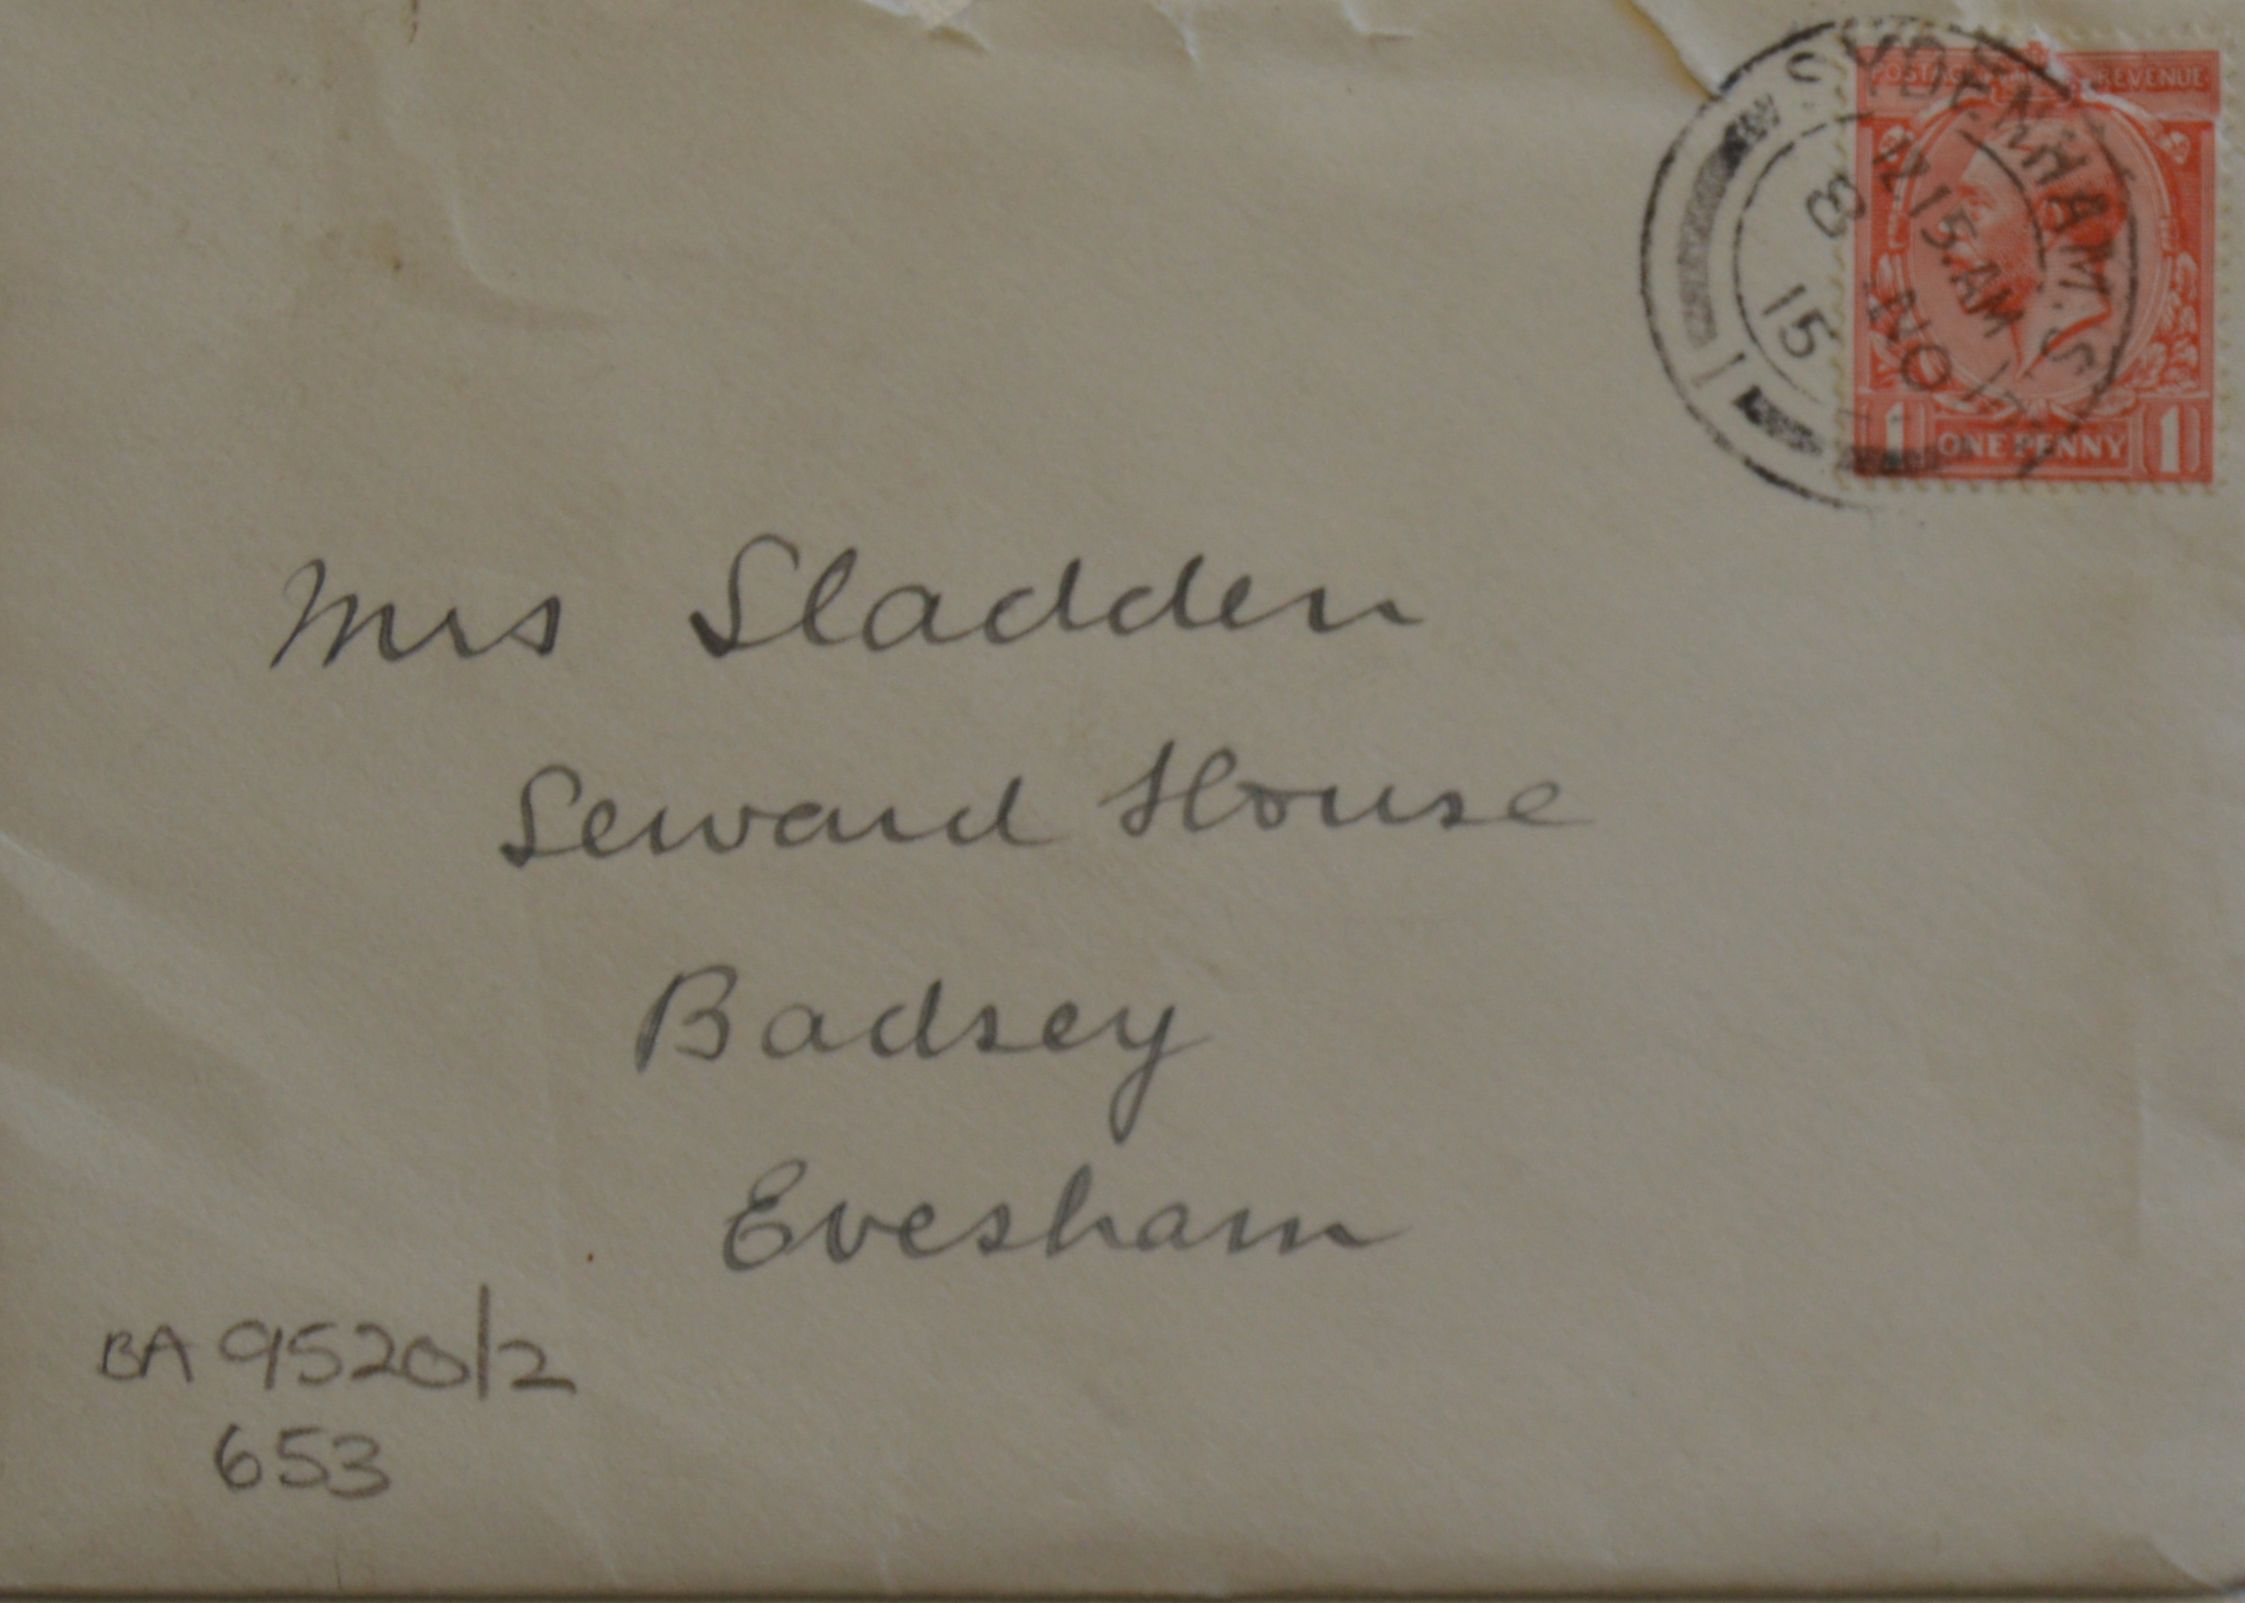 POSTAGE REVENUE
SYDENHAM. S.
12 15. AM
8 NO
15
1 ONE PENNY 1
Mrs Sladden
Seward House
Badsey
Evesham
BA 9520/2
653